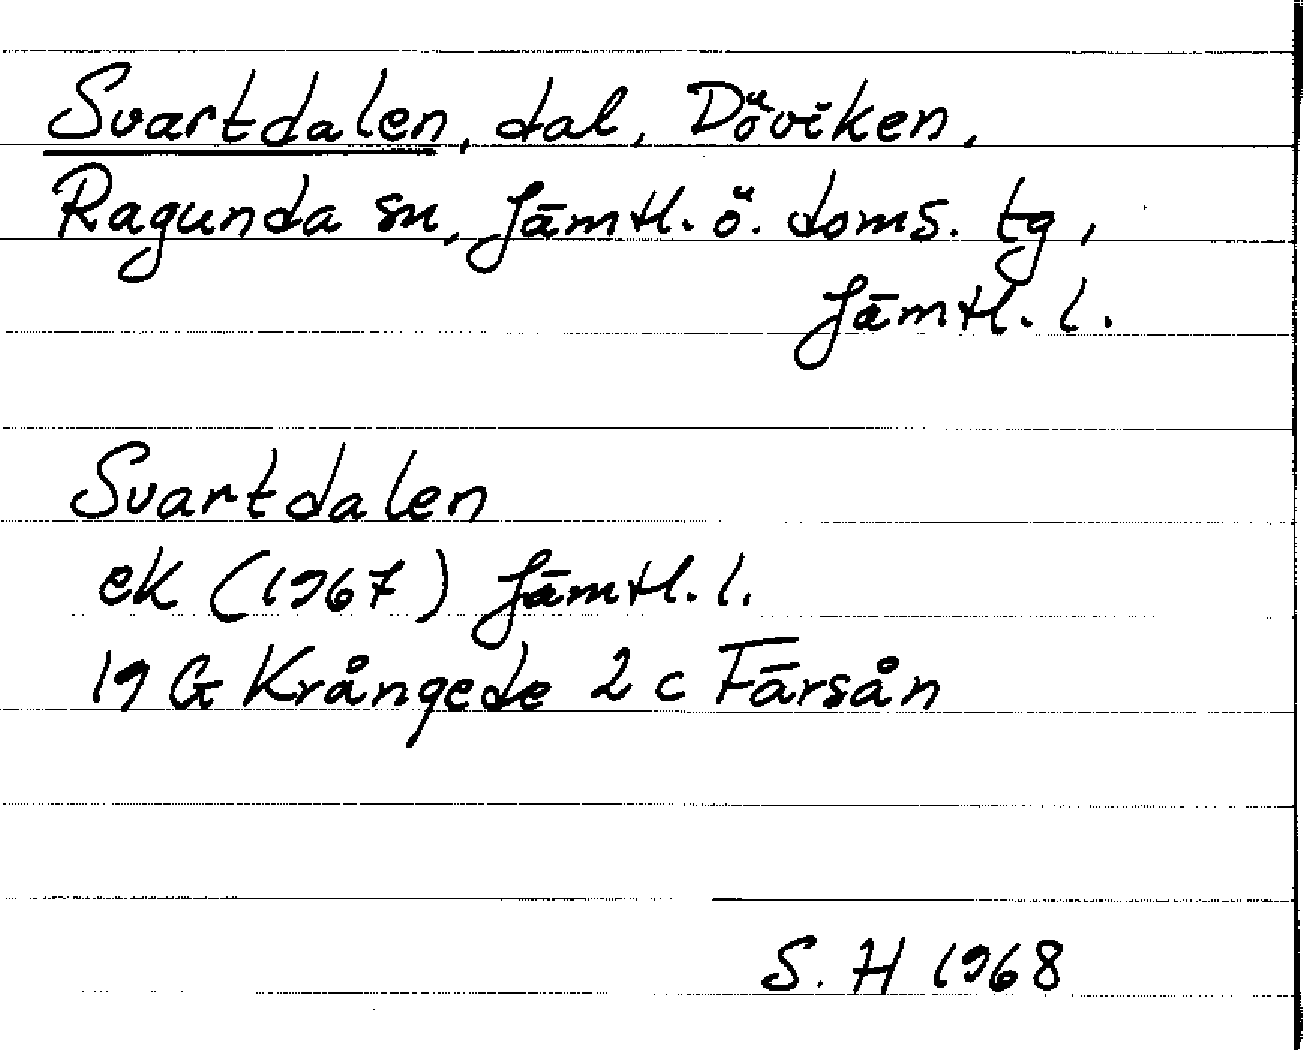 Svartdalen, dal, Döviken,
Ragunda sn, Jämtl. ö. doms. tg,
Jämtl. l.
Svartdalen
ek (1967) Jämtl. l.
19 G Krångede 2 c Färsån
S. H 1968